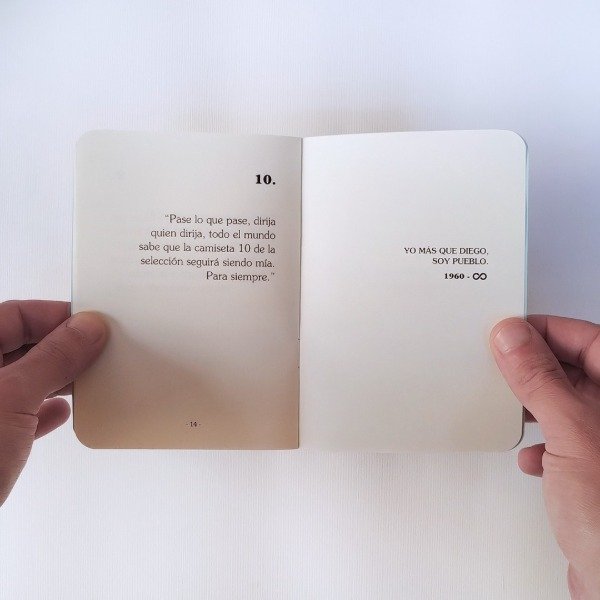 10.
“Pase lo que pase, dirija
quien dirija, todo el mundo
sabe que la camiseta 10 de la
selección seguirá siendo mía.
Para siempre.”
- 14 -
YO MÁS QUE DIEGO,
SOY PUEBLO.
1960 - ∞